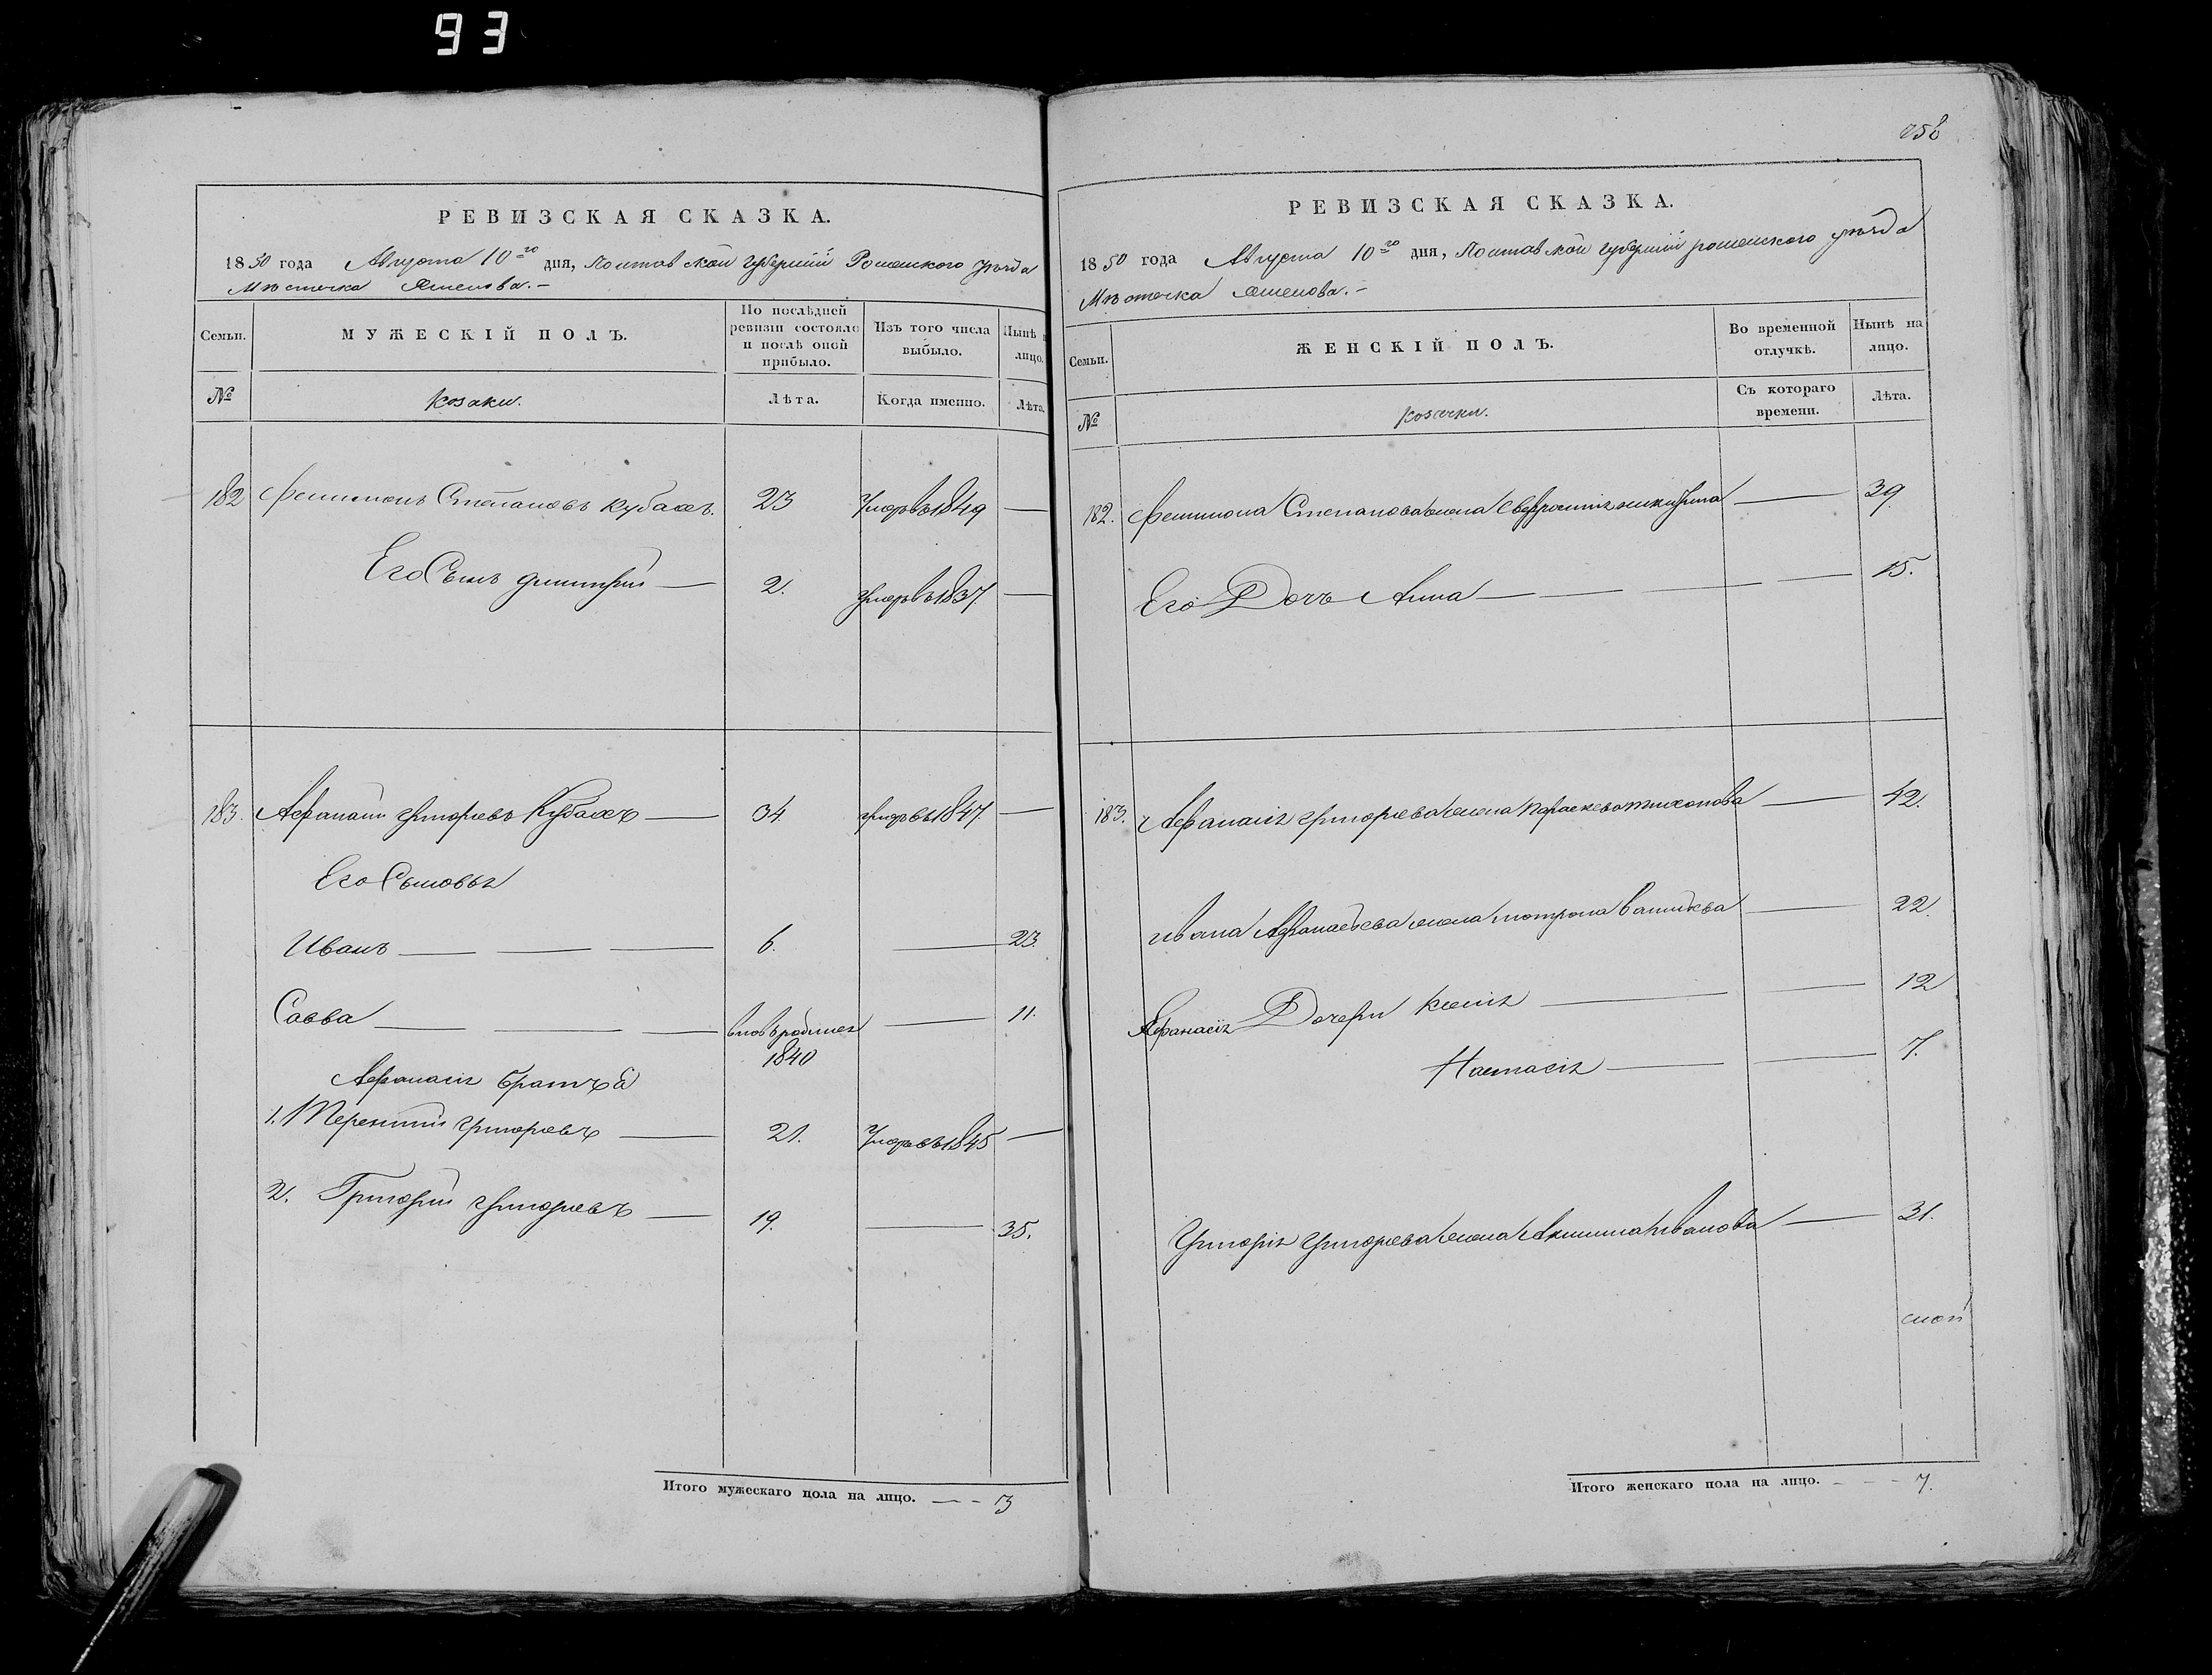 93
РЕВИЗСКАЯ СКАЗКА.
1850 года Августа 10го дня, Полтавской губернии Роменского уѣзда
Мѣстечка Смелова.-
Семьи. МУЖЕСКІЙ ПОЛЪ. По послѣдней ревизіи состояло и послѣ оной прибыло. Изъ того числа выбыло. Нынѣ лицо.
№ Козаки. Лѣта. Когда именно. Лѣта.
182 Филимонъ Степановъ Кубахъ. 23 Умеръ въ 1849 —
Его Сынъ Димитрій — 2. Умеръ въ 1837. —
183. Афанасій Григорьевъ Кубахъ — 34. Умеръ въ 1847. —
Его Сыновья
Иванъ — — — 6. — 23.
Савва — — — вновь родился 1840 — 11.
Афанасія братья
1. Терентій Григорьевъ — 21. Умеръ въ 1845 —
2. Григорій Григорьевъ — 19. — 35.
Итого мужескаго пола на лицо. — - 3
РЕВИЗСКАЯ СКАЗКА.
1850 года Августа 10го дня, Полтавской губернии роменского уѣзда
Мѣстечка Смелова.-
Семьи. ЖЕНСКІЙ ПОЛЪ. Во временной отлучкѣ. Нынѣ на лицо.
№ Козачки. Съ котораго времени. Лѣта.
182. Филимона Степанова жена Евфросинія — 39.
Его Дочь Анна — — — — 15.
183. Афанасія Григорьева жена Параскева Тихонова — 42.
Ивана Афанасьева жена Мотрона — 22.
Афанасія Дочери Ксенія — — 12
Настасія — — 7.
Григорія Григорьева жена Акилина Иванова — 31.
Итого женскаго пола на лицо. - - - 7.